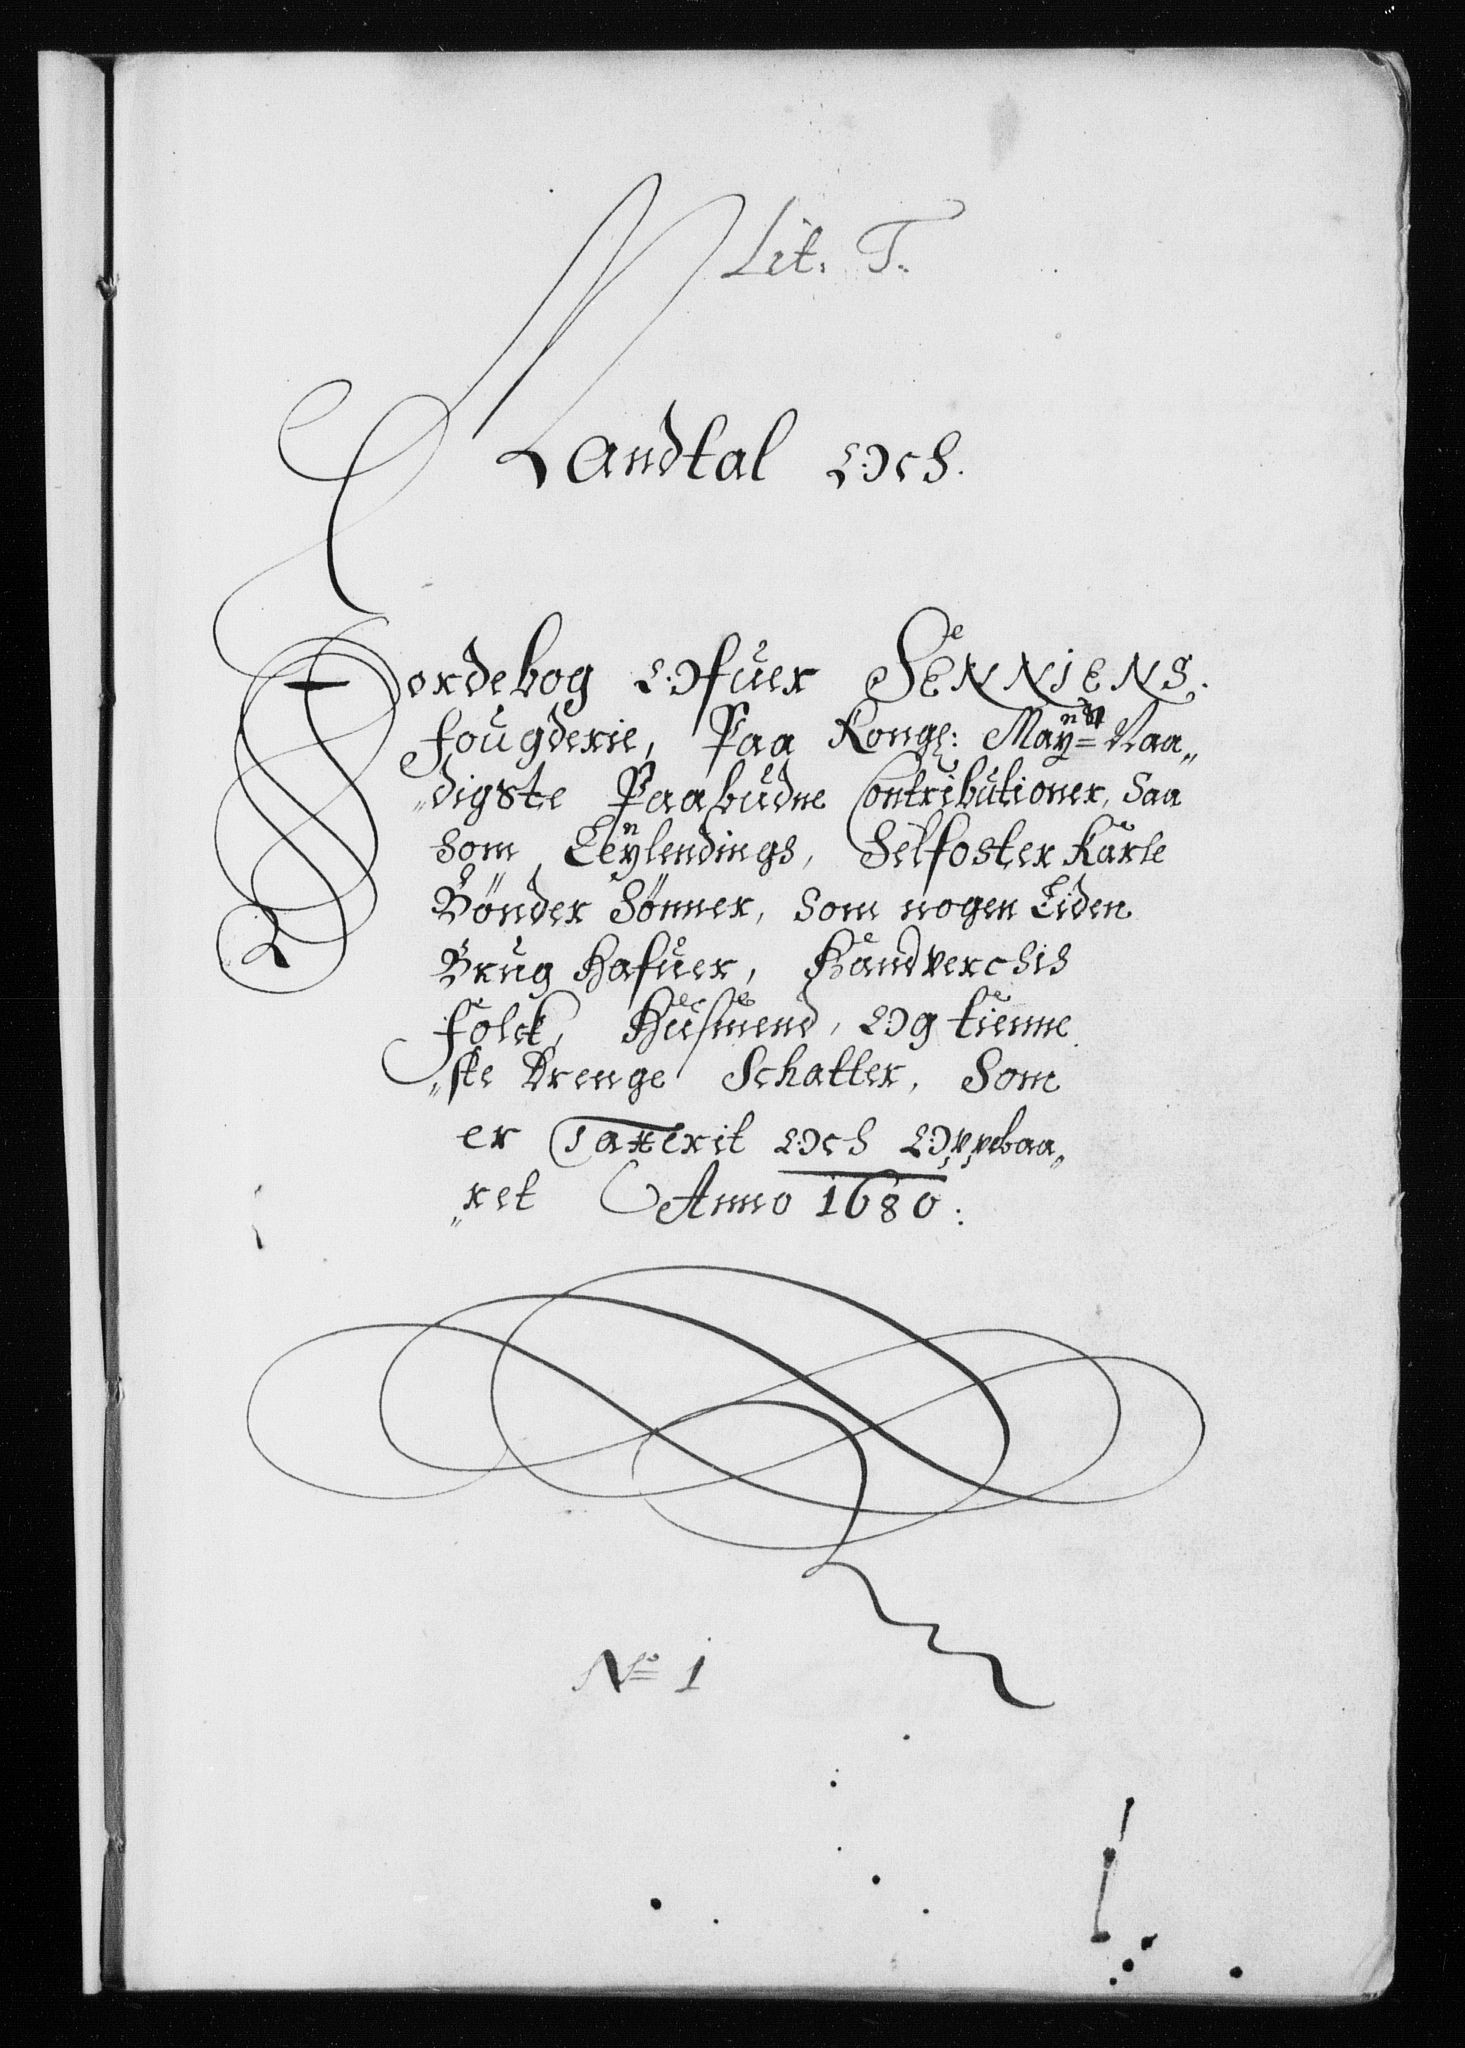 Lit. T.
Mandtal Och.
Jordebog Ofuer SENNIENS.
fougderie, Paa Kongl: May:ts Naa„
„digste Paabudne Contributioner, Saa
Som Leylendings, Selfoster Karle
Bønder Sønner, Som nogen Tiden
Brug Hafuer, Handverchis
folck, Husmend, Og tienne
„ste Drenge Schatter, Som
er Taxerit Och Oppebaa„
„ret Anno 1680:
No 1